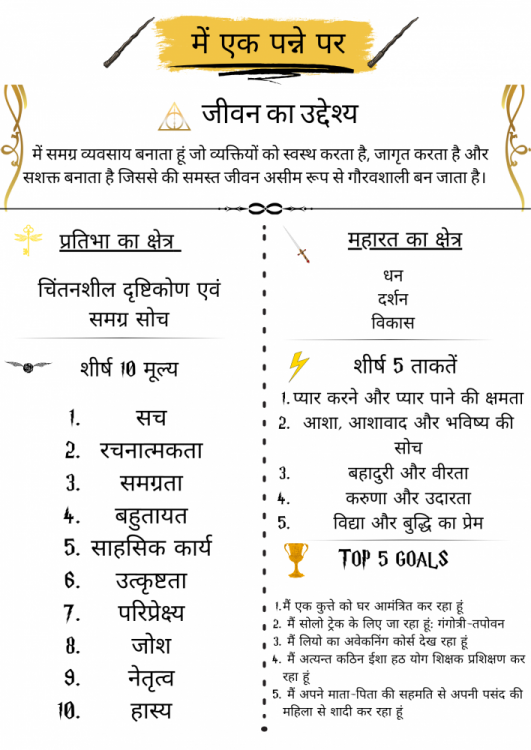 में एक पन्ने पर
जीवन का उद्देश्य
में समग्र व्यवसाय बनाता हूं जो व्यक्तियों को स्वस्थ करता है, जागृत करता है और
सशक्त बनाता है जिससे की समस्त जीवन असीम रूप से गौरवशाली बन जाता है।
प्रतिभा का क्षेत्र
चिंतनशील दृष्टिकोण एवं
समग्र सोच
शीर्ष 10 मूल्य
1. सच
2. रचनात्मकता
3. समग्रता
4. बहुतायत
5. साहसिक कार्य
6. उत्कृष्टता
7. परिप्रेक्ष्य
8. जोश
9. नेतृत्व
10. हास्य
महारत का क्षेत्र
धन
दर्शन
विकास
शीर्ष 5 ताकतें
1. प्यार करने और प्यार पाने की क्षमता
2. आशा, आशावाद और भविष्य की
सोच
3. बहादुरी और वीरता
4. करुणा और उदारता
5. विद्या और बुद्धि का प्रेम
TOP 5 GOALS
1. मैं एक कुत्ते को घर आमंत्रित कर रहा हूं
2. मैं सोलो ट्रेक के लिए जा रहा हूं: गंगोत्री-तपोवन
3. मैं लियो का अवेकनिंग कोर्स देख रहा हूं
4. मैं अत्यन्त कठिन ईशा हठ योग शिक्षक प्रशिक्षण कर
रहा हूं
5. मैं अपने माता-पिता की सहमति से अपनी पसंद की
महिला से शादी कर रहा हूं